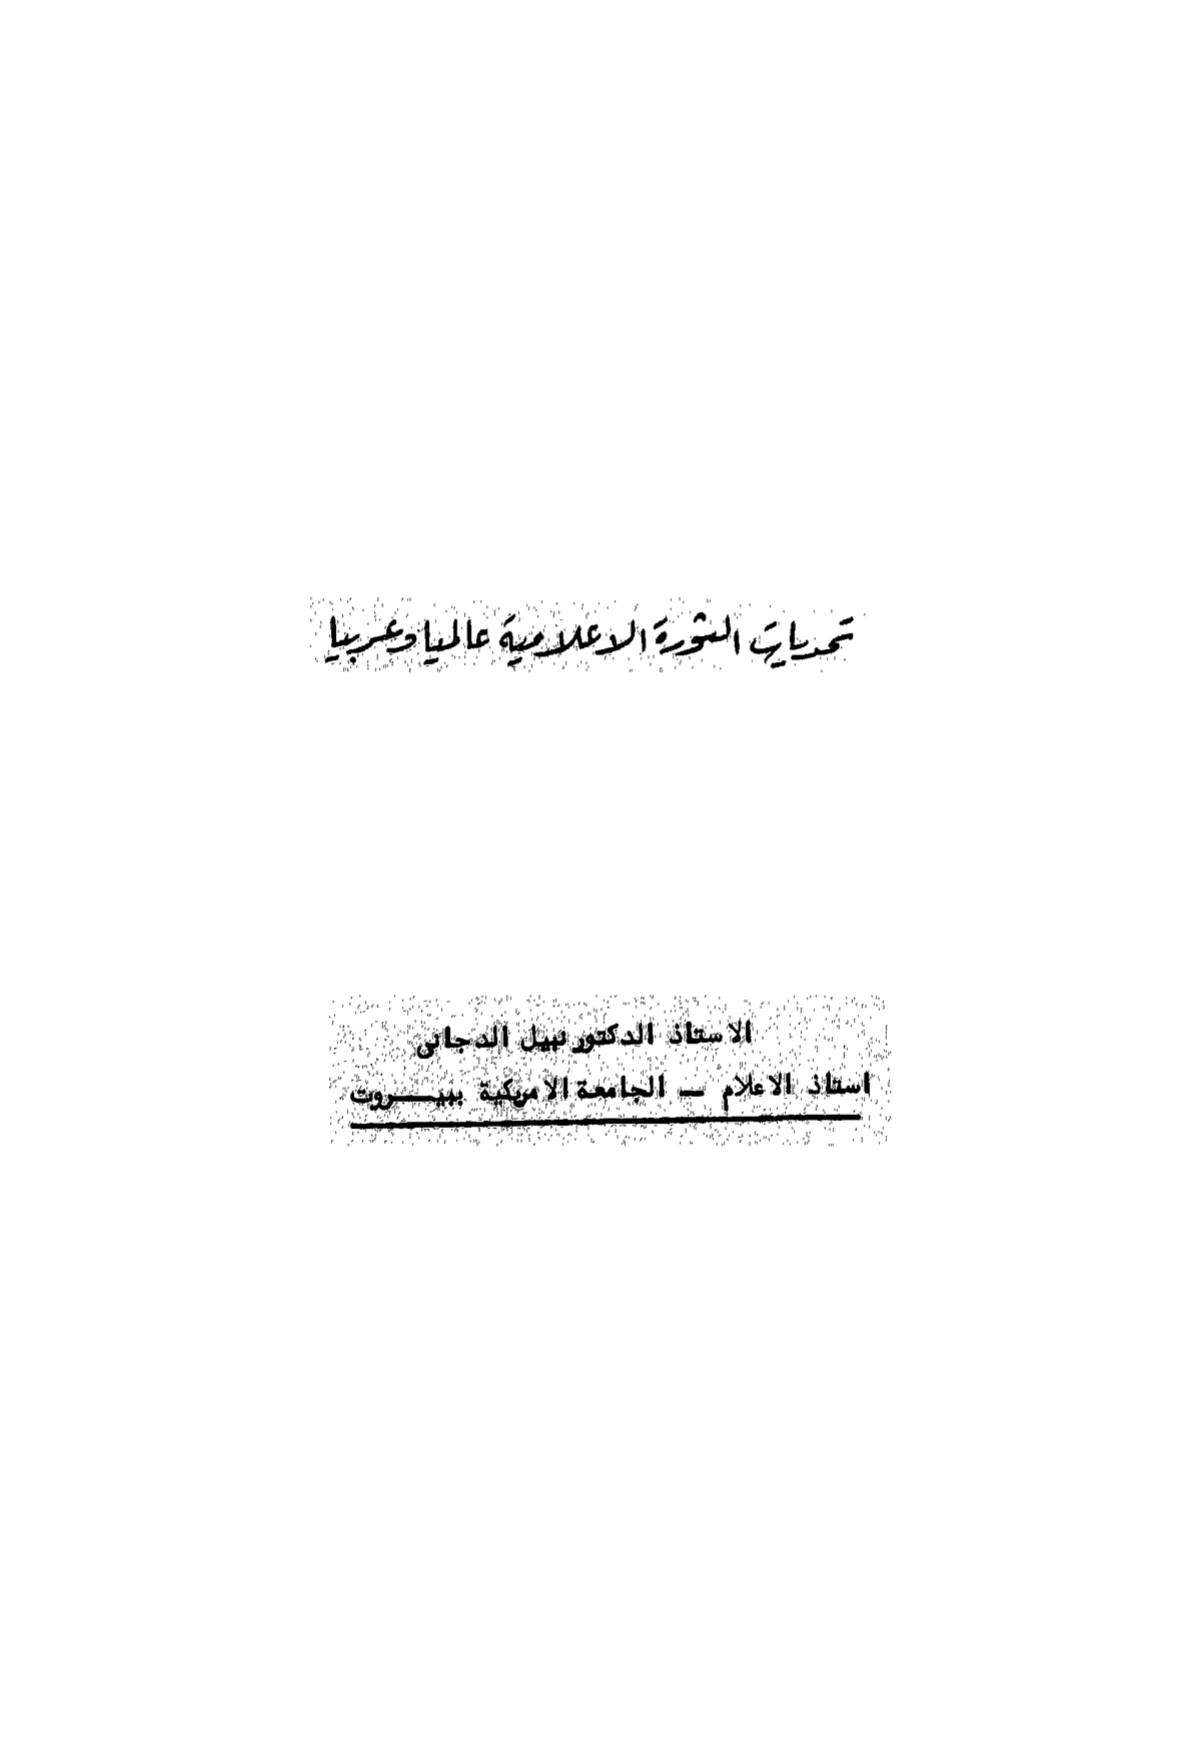 تحديات الثورة الاعلامية عالميا وعربيا
الاستاذ الدكتور نبيل الدجانى
استاذ الاعلام – الجامعة الامريكية ببيــروت